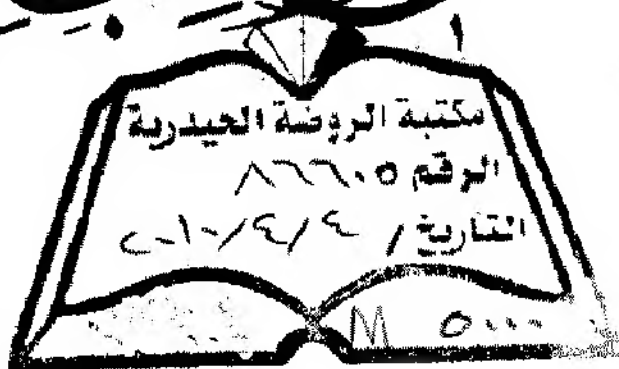 مكتبة الروضة الحيدرية
الرقم ٨٦٦٠٥
التاريخ / ٤/٤/٢٠١٠
M ٥٠٠٠